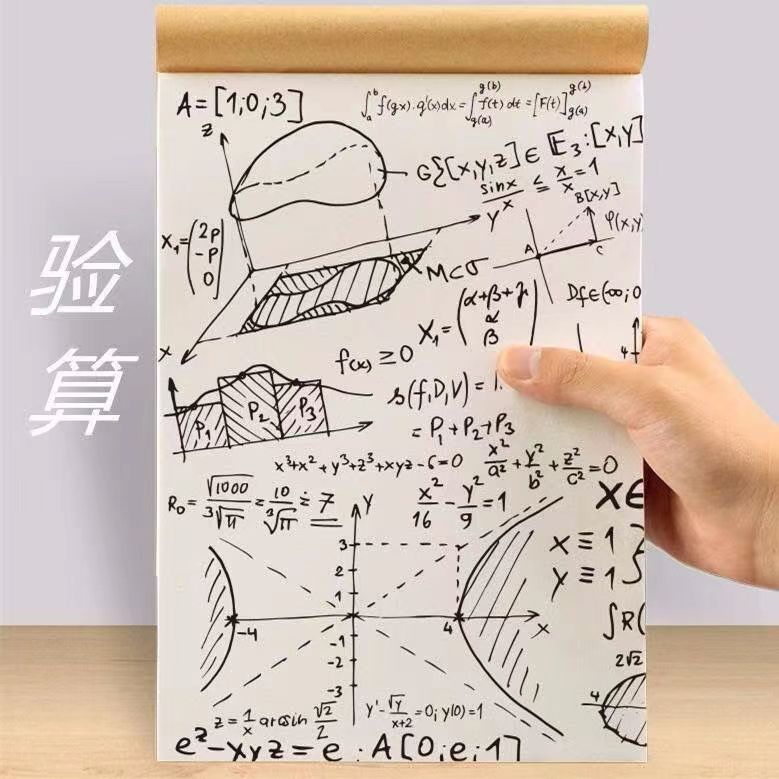 验算
A=[1;0;3]
∫ₐᵇ f(gx).g'(x)dx=∫_{g(a)}^{g(b)} f(t) dt=[F(t)]_{g(a)}^{g(b)}
Z
G{[x,y,z]∈E₃:[x,y]
sinx/x ≤ x/x=1
B[x,y]
y
φ(x,y
A
C
X₁=(2p -p 0)
M⊂σ
X₁=(α+β+γ α β)
Df∈(-∞;0
X
4
f(x)≥0
s(f,D,V)=
P₁ P₂ P₃
=P₁+P₂+P₃
x³+x²+y³+z³+xyz-6=0
x²/a²+y²/b²+z²/c²=0
R₀=√1000/³√π=10/³√π≐7
Y
x²/16-y²/9=1
X∈
3
2
1
x≡1
y≡1}
-4
4
X
-1
-2
-3
∫R(
2√2
4
z=1/x arcsin √2/2
y'-√y/x+2=0; y(0)=1
eᶻ-xyz=e; A[0;e;1]